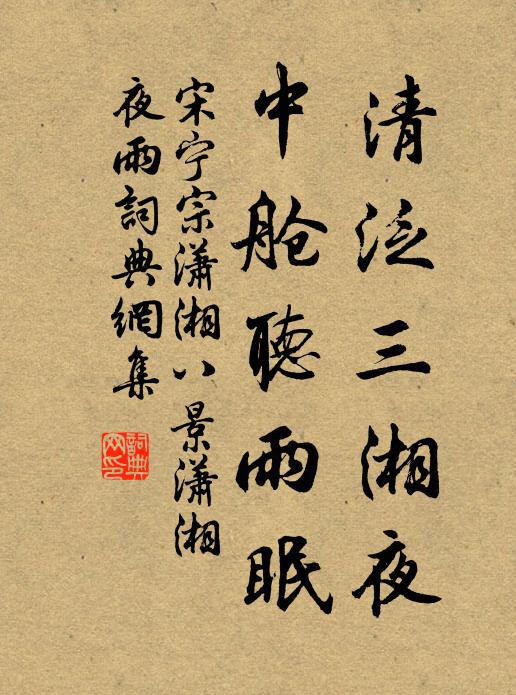 清泛三湘夜
中舱聽雨眠
宋宁宗瀟湘八景瀟湘
夜雨詞典網集
詞典
网印